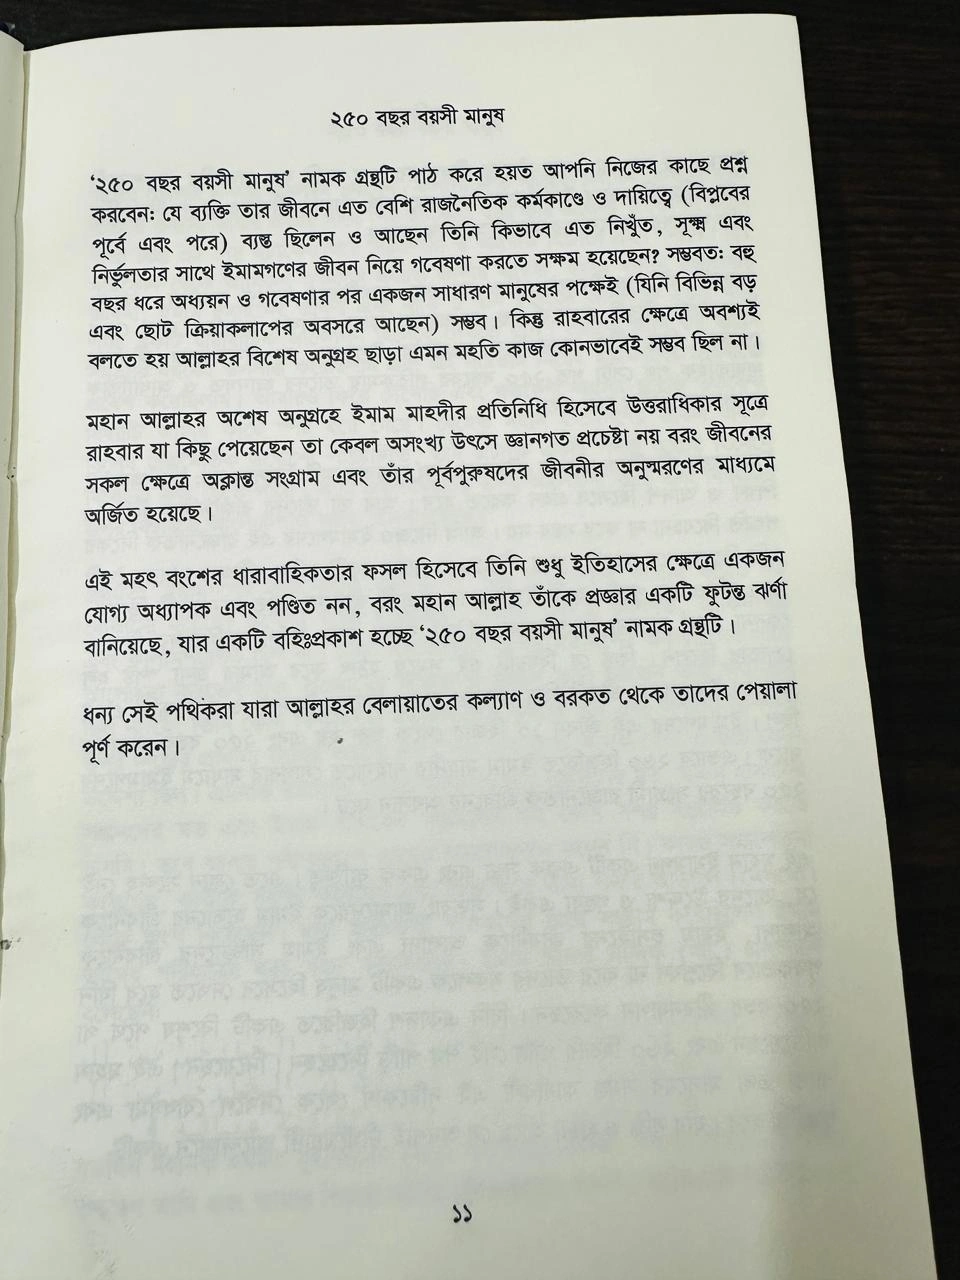 ২৫০ বছর বয়সী মানুষ
‘২৫০ বছর বয়সী মানুষ’ নামক গ্রন্থটি পাঠ করে হয়ত আপনি নিজের কাছে প্রশ্ন
করবেন: যে ব্যক্তি তার জীবনে এত বেশি রাজনৈতিক কর্মকাণ্ডে ও দায়িত্বে (বিপ্লবের
পূর্বে এবং পরে) ব্যস্ত ছিলেন ও আছেন তিনি কিভাবে এত নিখুঁত, সূক্ষ্ম এবং
নির্ভুলতার সাথে ইমামগণের জীবন নিয়ে গবেষণা করতে সক্ষম হয়েছেন? সম্ভবত: বহু
বছর ধরে অধ্যয়ন ও গবেষণার পর একজন সাধারণ মানুষের পক্ষেই (যিনি বিভিন্ন বড়
এবং ছোট ক্রিয়াকলাপের অবসরে আছেন) সম্ভব। কিন্তু রাহবারের ক্ষেত্রে অবশ্যই
বলতে হয় আল্লাহর বিশেষ অনুগ্রহ ছাড়া এমন মহতি কাজ কোনভাবেই সম্ভব ছিল না।
মহান আল্লাহর অশেষ অনুগ্রহে ইমাম মাহদীর প্রতিনিধি হিসেবে উত্তরাধিকার সূত্রে
রাহবার যা কিছু পেয়েছেন তা কেবল অসংখ্য উৎসে জ্ঞানগত প্রচেষ্টা নয় বরং জীবনের
সকল ক্ষেত্রে অক্লান্ত সংগ্রাম এবং তাঁর পূর্বপুরুষদের জীবনীর অনুস্মরণের মাধ্যমে
অর্জিত হয়েছে।
এই মহৎ বংশের ধারাবাহিকতার ফসল হিসেবে তিনি শুধু ইতিহাসের ক্ষেত্রে একজন
যোগ্য অধ্যাপক এবং পণ্ডিত নন, বরং মহান আল্লাহ তাঁকে প্রজ্ঞার একটি ফুটন্ত ঝর্ণা
বানিয়েছে, যার একটি বহিঃপ্রকাশ হচ্ছে ‘২৫০ বছর বয়সী মানুষ’ নামক গ্রন্থটি।
ধন্য সেই পথিকরা যারা আল্লাহর বেলায়াতের কল্যাণ ও বরকত থেকে তাদের পেয়ালা
পূর্ণ করেন।
১১